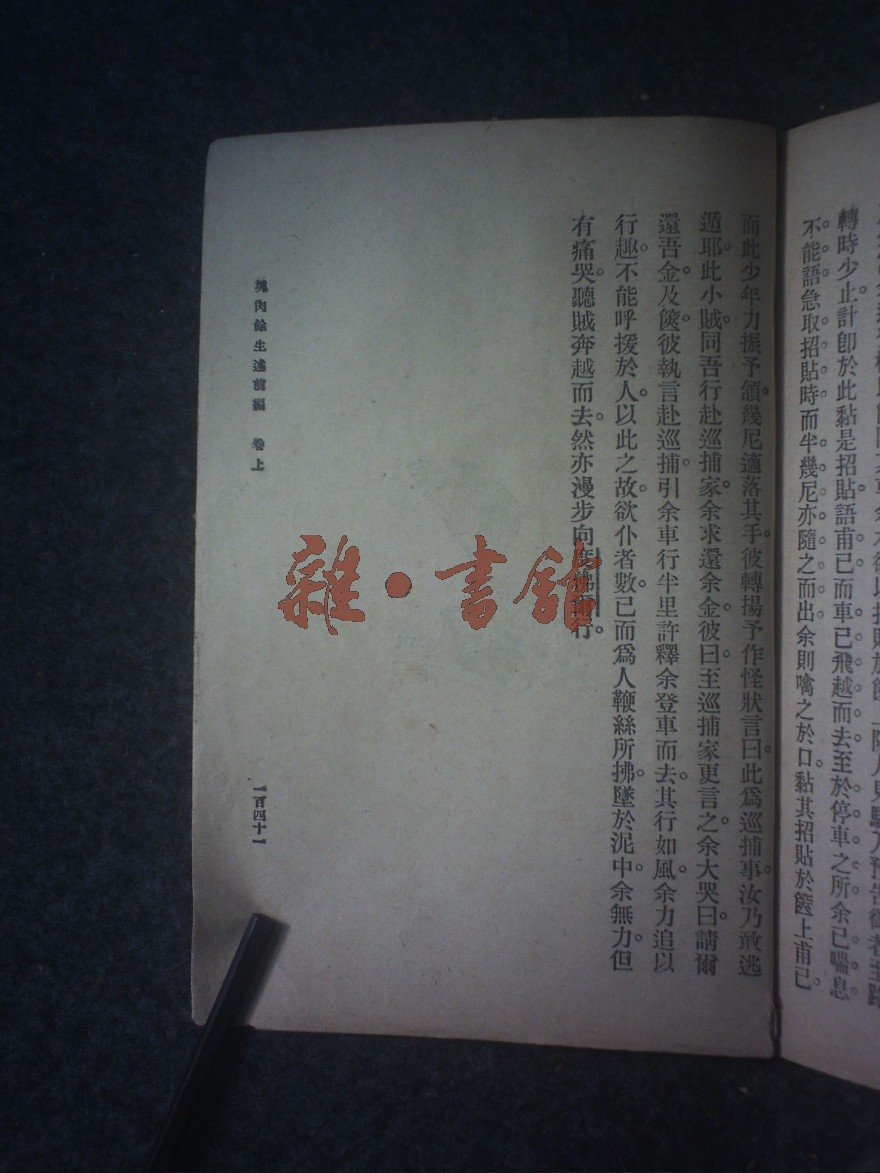 轉時少止計卽於此黏是招貼語甫已而車已飛越而去至於停車之所余已喘息
不能語急取招貼時而半幾尼亦隨之而出余則噙之於口黏其招貼於篋上甫已
而此少年力振予頷幾尼適落其手彼轉揚予作怪狀言曰此爲巡捕事汝乃敢逃
遁耶此小賊同吾行赴巡捕家余求還余金彼曰至巡捕家更言之余大哭曰請爾
還吾金及篋彼執言赴巡捕引余車行半里許釋余登車而去其行如風余力追以
行趣不能呼援於人以此之故欲仆者數已而爲人鞭絲所拂墜於泥中余無力但
有痛哭聽賊奔越而去然亦漫步向度佛爾行
塊肉餘生述前編 卷上
一百四十一
雜·書館